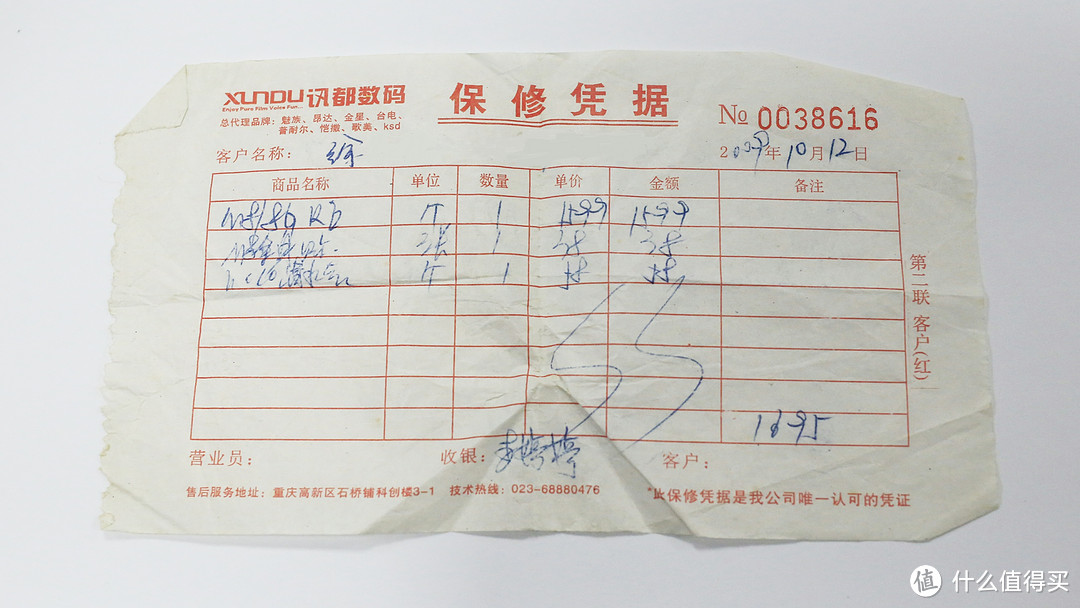 XUNDU 讯都数码
Enjoy Pure Film Voice Fun...
总代理品牌：魅族、昂达、金星、台电、
普耐尔、恺撒、歌美、ksd
保修凭据
№ 0038616
客户名称：徐
2009年10月12日
商品名称 单位 数量 单价 金额 备注
个 1 1599 1599
张 1 38 38
个 1 58 58
1695
第二联 客户(红)
营业员： 收银：李婷婷 客户：
售后服务地址：重庆高新区石桥铺科创楼3-1 技术热线：023-68880476 *此保修凭据是我公司唯一认可的凭证
值 什么值得买